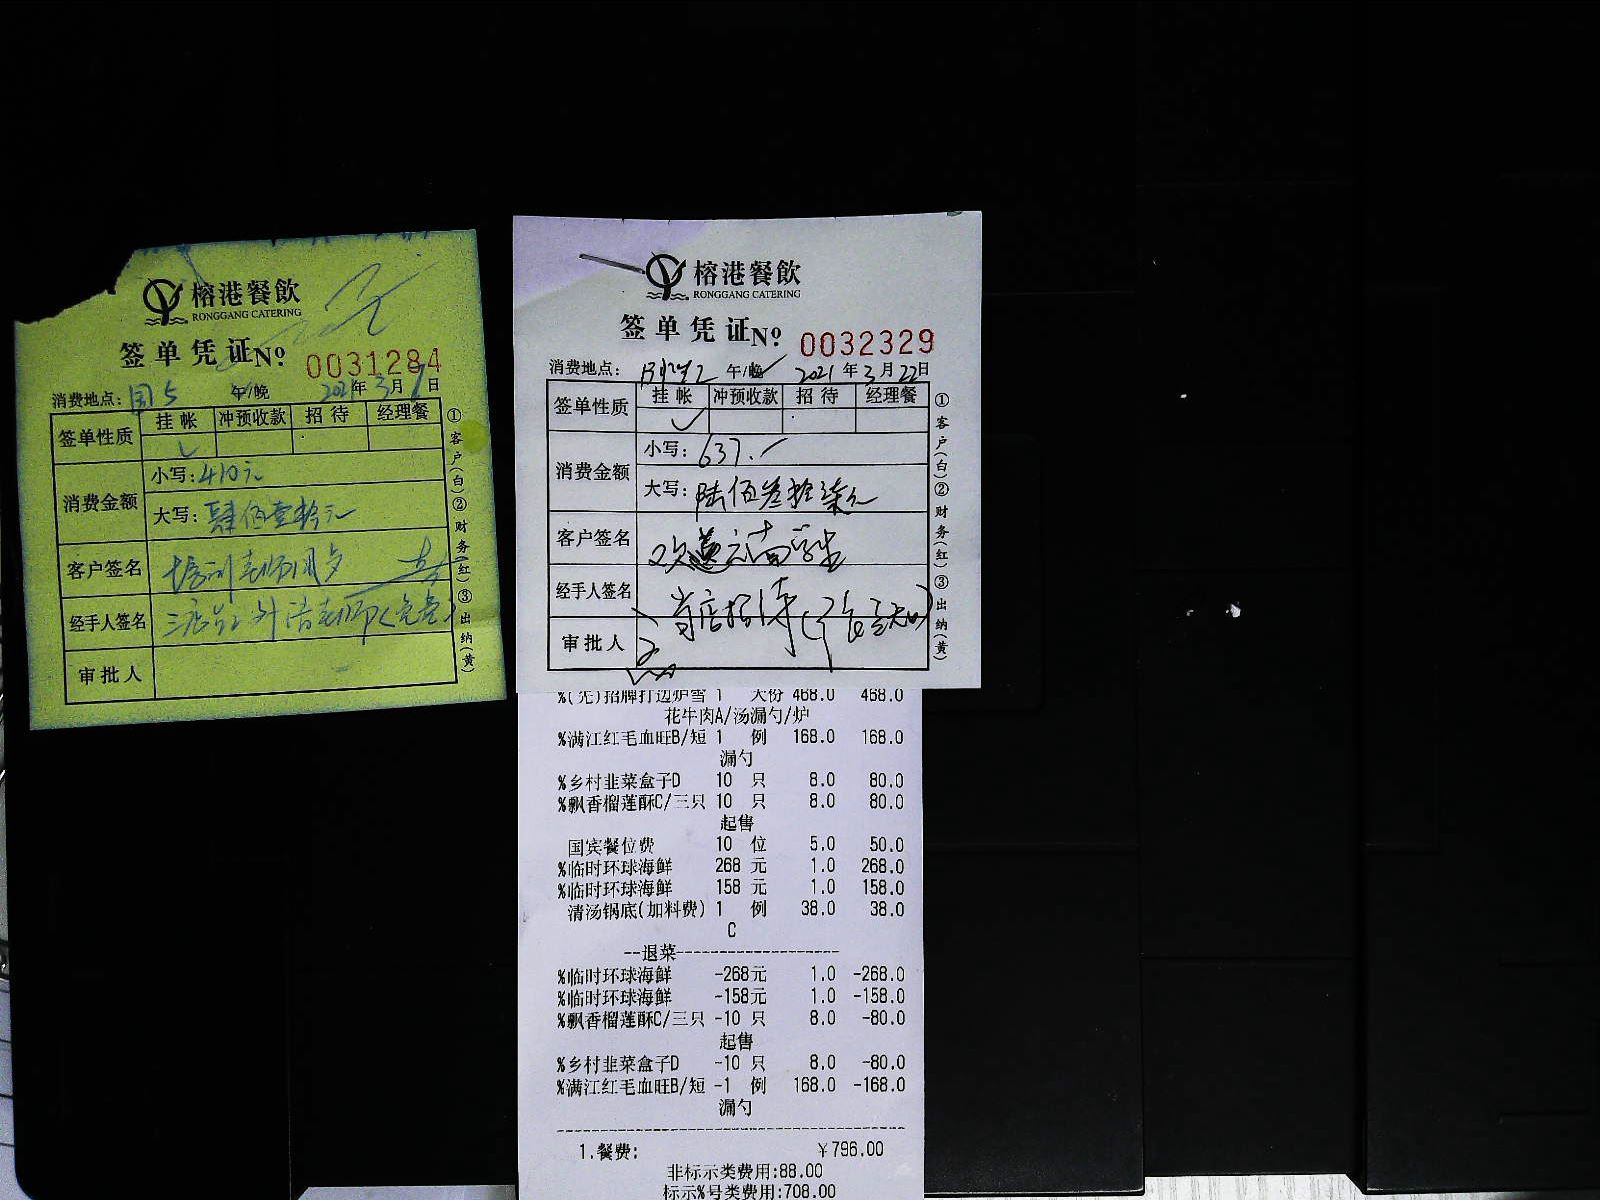 榕港餐飲
RONGGANG CATERING
签单凭证No 0031284
消费地点: 国5 午/晚 2021年3月1日
签单性质 挂帐 冲预收款 招待 经理餐
消费金额 小写:410元
大写:肆佰壹拾元
客户签名 培训老师用夕
经手人签名
审批人
①客户(白)②财务(红)③出纳(黄)
榕港餐飲
RONGGANG CATERING
签单凭证No 0032329
消费地点: 午/晚 2021年3月22日
签单性质 挂帐 冲预收款 招待 经理餐
消费金额 小写:637.
大写:陆佰叁拾柒元
客户签名
经手人签名 当店招待
审批人
①客户(白)②财务(红)③出纳(黄)
%(先)招牌打边炉雪 1 大份 468.0 468.0
花牛肉A/汤漏勺/炉
%满江红毛血旺B/短 1 例 168.0 168.0
漏勺
%乡村韭菜盒子D 10 只 8.0 80.0
%飘香榴莲酥C/三只 10 只 8.0 80.0
起售
国宾餐位费 10 位 5.0 50.0
%临时环球海鲜 268 元 1.0 268.0
%临时环球海鲜 158 元 1.0 158.0
清汤锅底(加料费) 1 例 38.0 38.0
C
--退菜--------------------
%临时环球海鲜 -268元 1.0 -268.0
%临时环球海鲜 -158元 1.0 -158.0
%飘香榴莲酥C/三只 -10 只 8.0 -80.0
起售
%乡村韭菜盒子D -10 只 8.0 -80.0
%满江红毛血旺B/短 -1 例 168.0 -168.0
漏勺
1.餐费: ￥796.00
非标示类费用:88.00
标示%号类费用:708.00